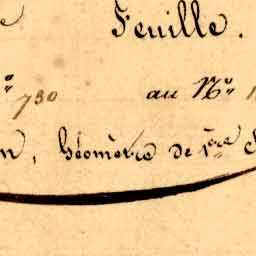 e Feuille.
º 730 au Nº 1
n, Géomètre de 1re c